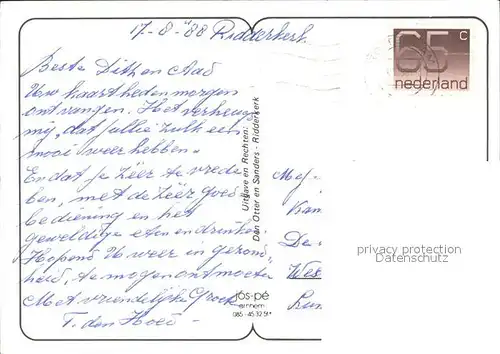 17-8-'88 Ridderkerk
Beste Dith en Aad
Uw kaart heden morgen
ontvangen. Het verheugt
mij, dat jullie zulk een
mooi weer hebben.
En dat je zéér te vrede
ben, met de zéér goed
bediening en het
geweldige eten en drinken.
Hopend U weer in gezond
heid, te mogen ontmoeten
Met vriendelijke Groet
T. den Hoed -
65 c
nederland
Uitgave en Rechten:
Den Otter en Sanders - Ridderkerk
jos-pé
arnhem
085 - 45 32 51*
Mej-
De
Wes
privacy protection
Datenschutz